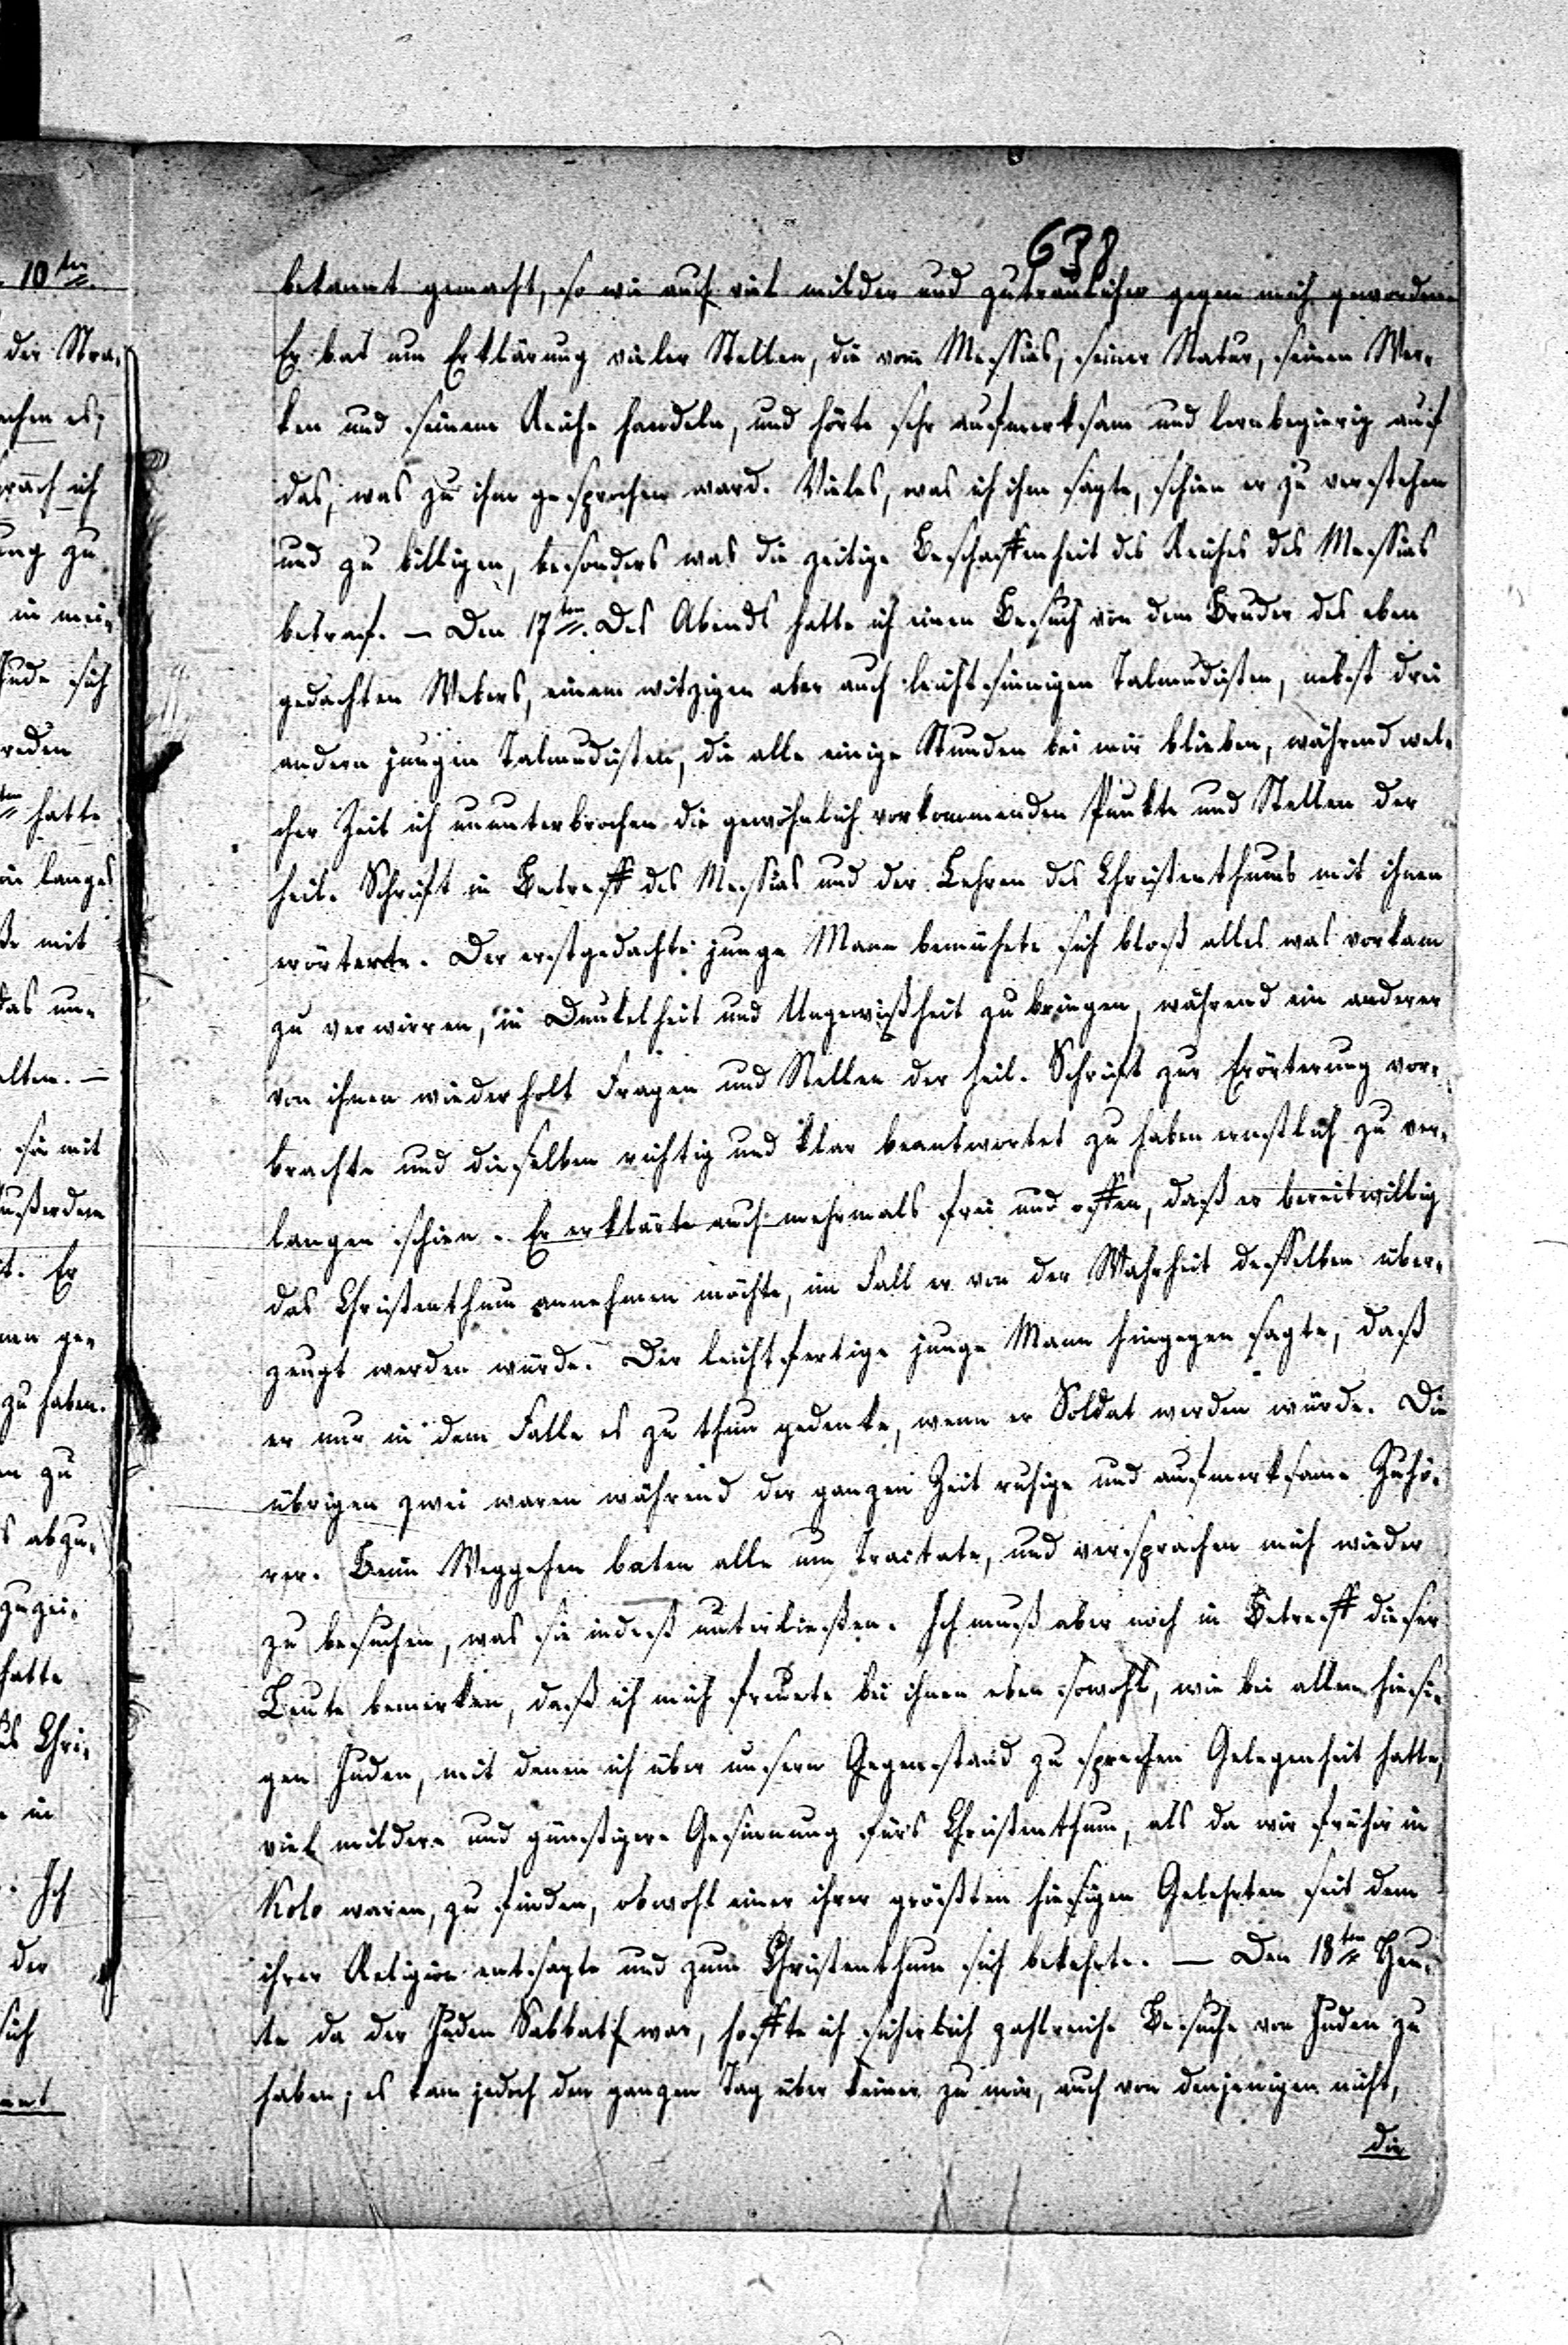 638
bekannt gemacht, so wie auch viel milder und zutraulicher gegen mich geworden.
Er bat um Erklärung vieler Stellen, die vom Messias, seiner Natur, seinen Wer-
ken und seinem Reiche handeln, und hörte sehr aufmerksam und lernbegierig auf
das, was zu ihm gesprochen ward. Vieles, was ich ihm sagte, schien er zu verstehen
und zu billigen, besonders was die zeitige Beschaffenheit des Reiches des Messias
betraf. – Den 17ten. Des Abends hatte ich einen Besuch von dem Bruder des eben
gedachten Webers, einem witzigen aber auch leichtsinnigen Talmudisten, nebst drei
andern jungen Talmudisten, die alle einige Stunden bei mir blieben, während wel-
cher Zeit ich ununterbrochen die gewöhnlich vorkommenden Punkte und Stellen der
heil. Schrift in Betreff des Messias und der Lehren des Christenthums mit ihnen
erörterte. Der erstgedachte junge Mann bemühete sich bloß alles was vorkam
zu verwirren, in Dunkelheit und Ungewißheit zu bringen, während ein anderer
von ihnen wiederholt Fragen und Stellen der heil. Schrift zur Erörterung vor-
brachte und dieselben richtig und klar beantwortet zu haben ernstlich zu ver-
langen schien. Er erklärte auch mehrmals frei und offen, daß er bereitwillig
das Christenthum annehmen möchte, im Fall er von der Wahrheit desselben über-
zeugt werden würde. Der leichtfertige junge Mann hingegen sagte, daß
er nur in dem Falle es zu thun gedenke, wenn er Soldat werden würde. Die
übrigen zwei waren während der ganzen Zeit ruhige und aufmerksame Zuhö-
rer. Beim Weggehen baten alle um Tractate, und versprachen mich wieder
zu besuchen, was sie indeß unterließen. Ich muß aber noch in Betreff dieser
Leute bemerken, daß ich mich freuete bei ihnen eben sowohl, wie bei allen hiesi-
gen Juden, mit denen ich über unsern Gegenstand zu sprechen Gelegenheit hatte,
viel mildere und günstigere Gesinnung fürs Christenthum, als da wir früher in
Kolo waren, zu finden, obwohl einer ihrer größten hiesigen Gelehrten seit dem
ihrer Religion entsagte und zum Christenthum sich bekehrte. – Den 18ten Heu-
te da der Juden Sabbath war, hoffte ich sicherlich zahlreiche Besuche von Juden zu
haben; es kam jedoch den ganzen Tag über keiner zu mir, auch von denjenigen nicht,
die